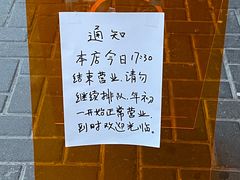 通知
本店今日17:30
结束营业.请勿
继续排队.年初
一开始正常营业.
到时欢迎光临.